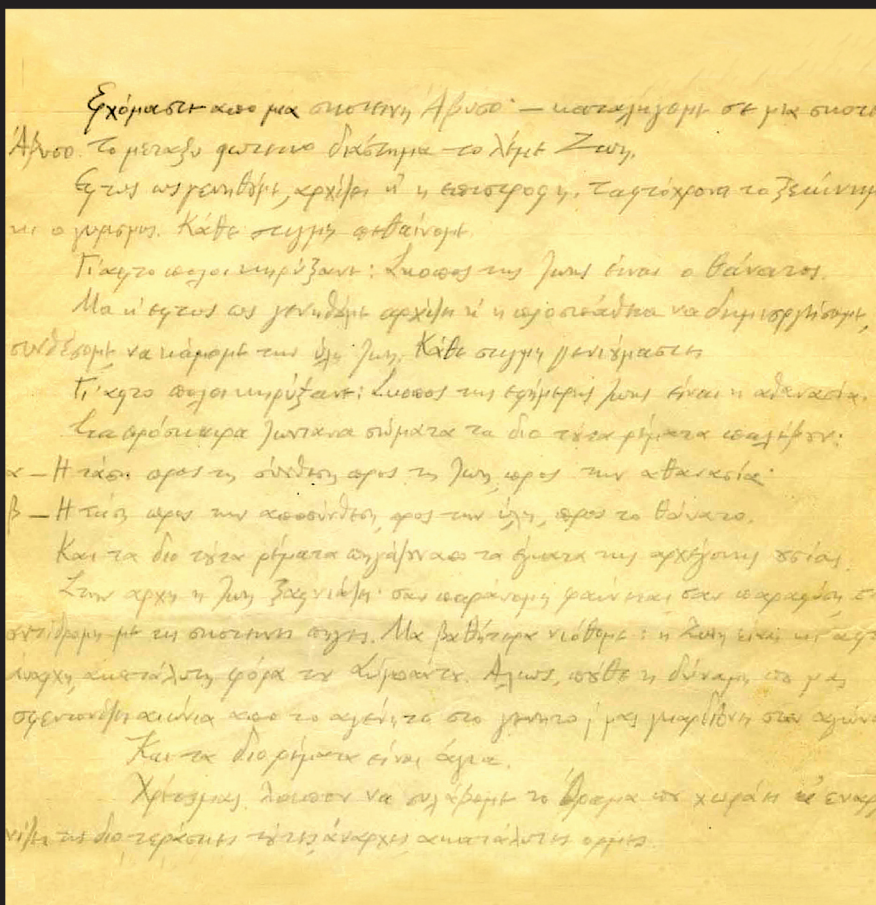 Ερχόμαστε απο μια σκοτεινη Άβυσο· — καταλήγομε σε μια σκοτει
Άβυσο. Το μεταξυ φωτεινο διάστημα το λέμε Ζωη.
Εφτυς ως γενηθούμε, αρχίζει κ' η επιστροφη. Ταφτόχρονα το ξεκίνημ
κι ο γυρισμος. Κάθε στιγμη πεθαίνομε.
Γι' αφτο πολοι κηρύξανε: Σκοπος της ζωης είναι ο θάνατος.
Μα κ' εφτυς ως γενηθούμε αρχίζει κ' η προσπάθεια να δημιουργήσομε,
συνθέσομε, να κάμομε την ύλη ζωη. Κάθε στιγμη γενιούμαστε
Γι' αφτο πολοι κηρύξανε: Σκοπος της εφήμερης ζωης είναι η αθανασία.
Στα πρόσκαιρα ζωντανα σώματα τα διο τούτα ρέματα παλέβουν:
α — Η τάση προς τη σύνθεση, προς τη ζωη, προς την αθανασία·
β — Η τάση προς την αποσύνθεση, προς την ύλη, προς το θάνατο.
Και τα διο τούτα ρέματα πηγάζουν απο τα έγκατα της αρχέγονης ουσίας.
Στην αρχη η ζωη ξαφνιάζει· σαν παράνομη φαίνεται, σαν παραφύση σ
αντίδρομη με τις σκοτεινες πηγες. Μα βαθήτερα νιόθομε: η Ζωη είναι κι αφτ
άναρχη, ακατάλυτη φόρα του Σύμπαντου. Αλιως, πούθε η δύναμη που μας
σφεντονίζει αιώνια απο το αγένητο στο γενητο, μας γκαρδιώνει στον αγώνα
Και τα διο ρέματα είναι άγια.
Χρέος μας λοιπον να συλάβομε τ' όραμα που χωράει κ' εναρ
νίζει τις διο τεράστιες τούτες άναρχες, ακατάλυτες ορμες.